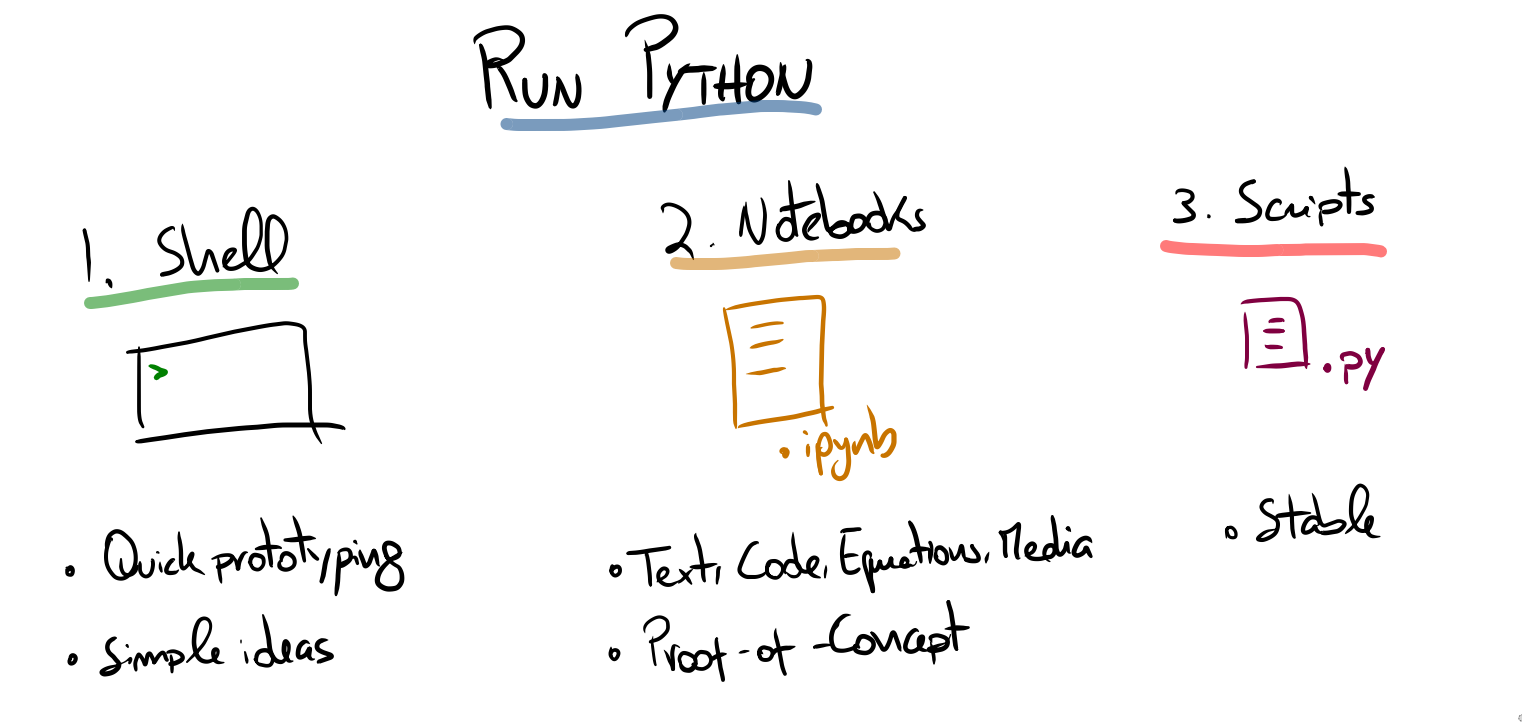 RUN PYTHON
1. Shell
>
• Quick prototyping
• Simple ideas
2. Notebooks
.ipynb
• Text, Code, Equations, Media
• Proof-of-Concept
3. Scripts
.py
• Stable